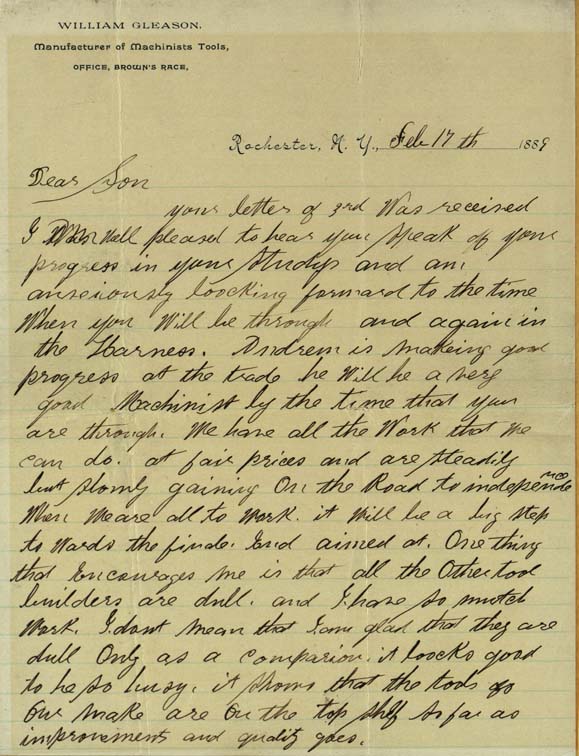 WILLIAM GLEASON.
Manufacturer of Machinists Tools,
OFFICE, BROWN'S RACE,
Rochester, N. Y., Feb 17th 1889
Dear Son
your letter of 3rd Was received
I Well pleased to hear you speak of your
progress in your Studys and am
anxiously loocking forward to the time
When you Will be through and again in
the Harness. Andrew is makeing good
progress at the trade he Will be a very
good Machinist by the time that you
are through. We have all the Work that we
can do. at fair prices and are steadily
but slowly gaining On the Road to independence
When We are all to Work. it Will be a big step
to Wards the End aimed at. One thing
that Encourages me is that all the Other tool
builders are dull. and I have so mutch
Work. I dont mean that I am glad that they are
dull Only as a comparion. it loocks good
to be so busy. it shows that the tools of
Our make are On the top shelf so far as
improvements and quality goes.